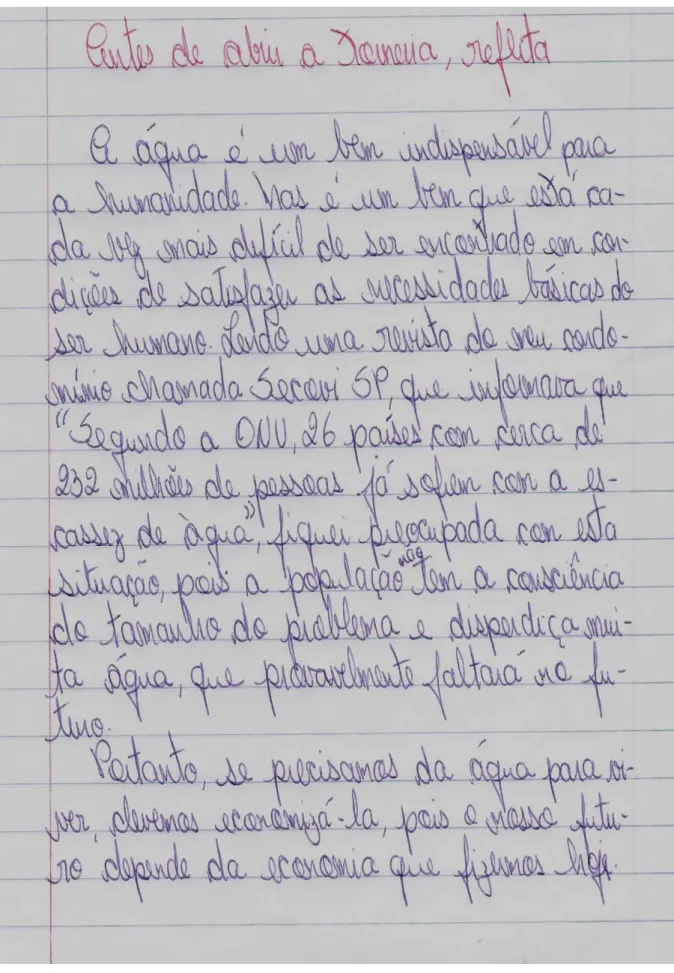 Antes de abrir a Torneira, reflita
A água é um bem indispensável para
a humanidade. Mas é um bem que está ca-
da vez mais difícil de ser encontrado em con-
dições de satisfazer as necessidades básicas do
ser humano. Lendo uma revista do meu condo-
mínio chamada Secovi SP, que informava que
"Segundo a ONU, 26 países com cerca de
232 milhões de pessoas já sofrem com a es-
cassez de àgua", fiquei preocupada com esta
situação, pois a população não tem a consciência
do tamanho do problema e disperdiça mui-
ta água, que provavelmente faltará no fu-
turo.
Portanto, se precisamos da água para vi-
ver, devemos economizá-la, pois o nosso futu-
ro depende da economia que fizermos hoje.